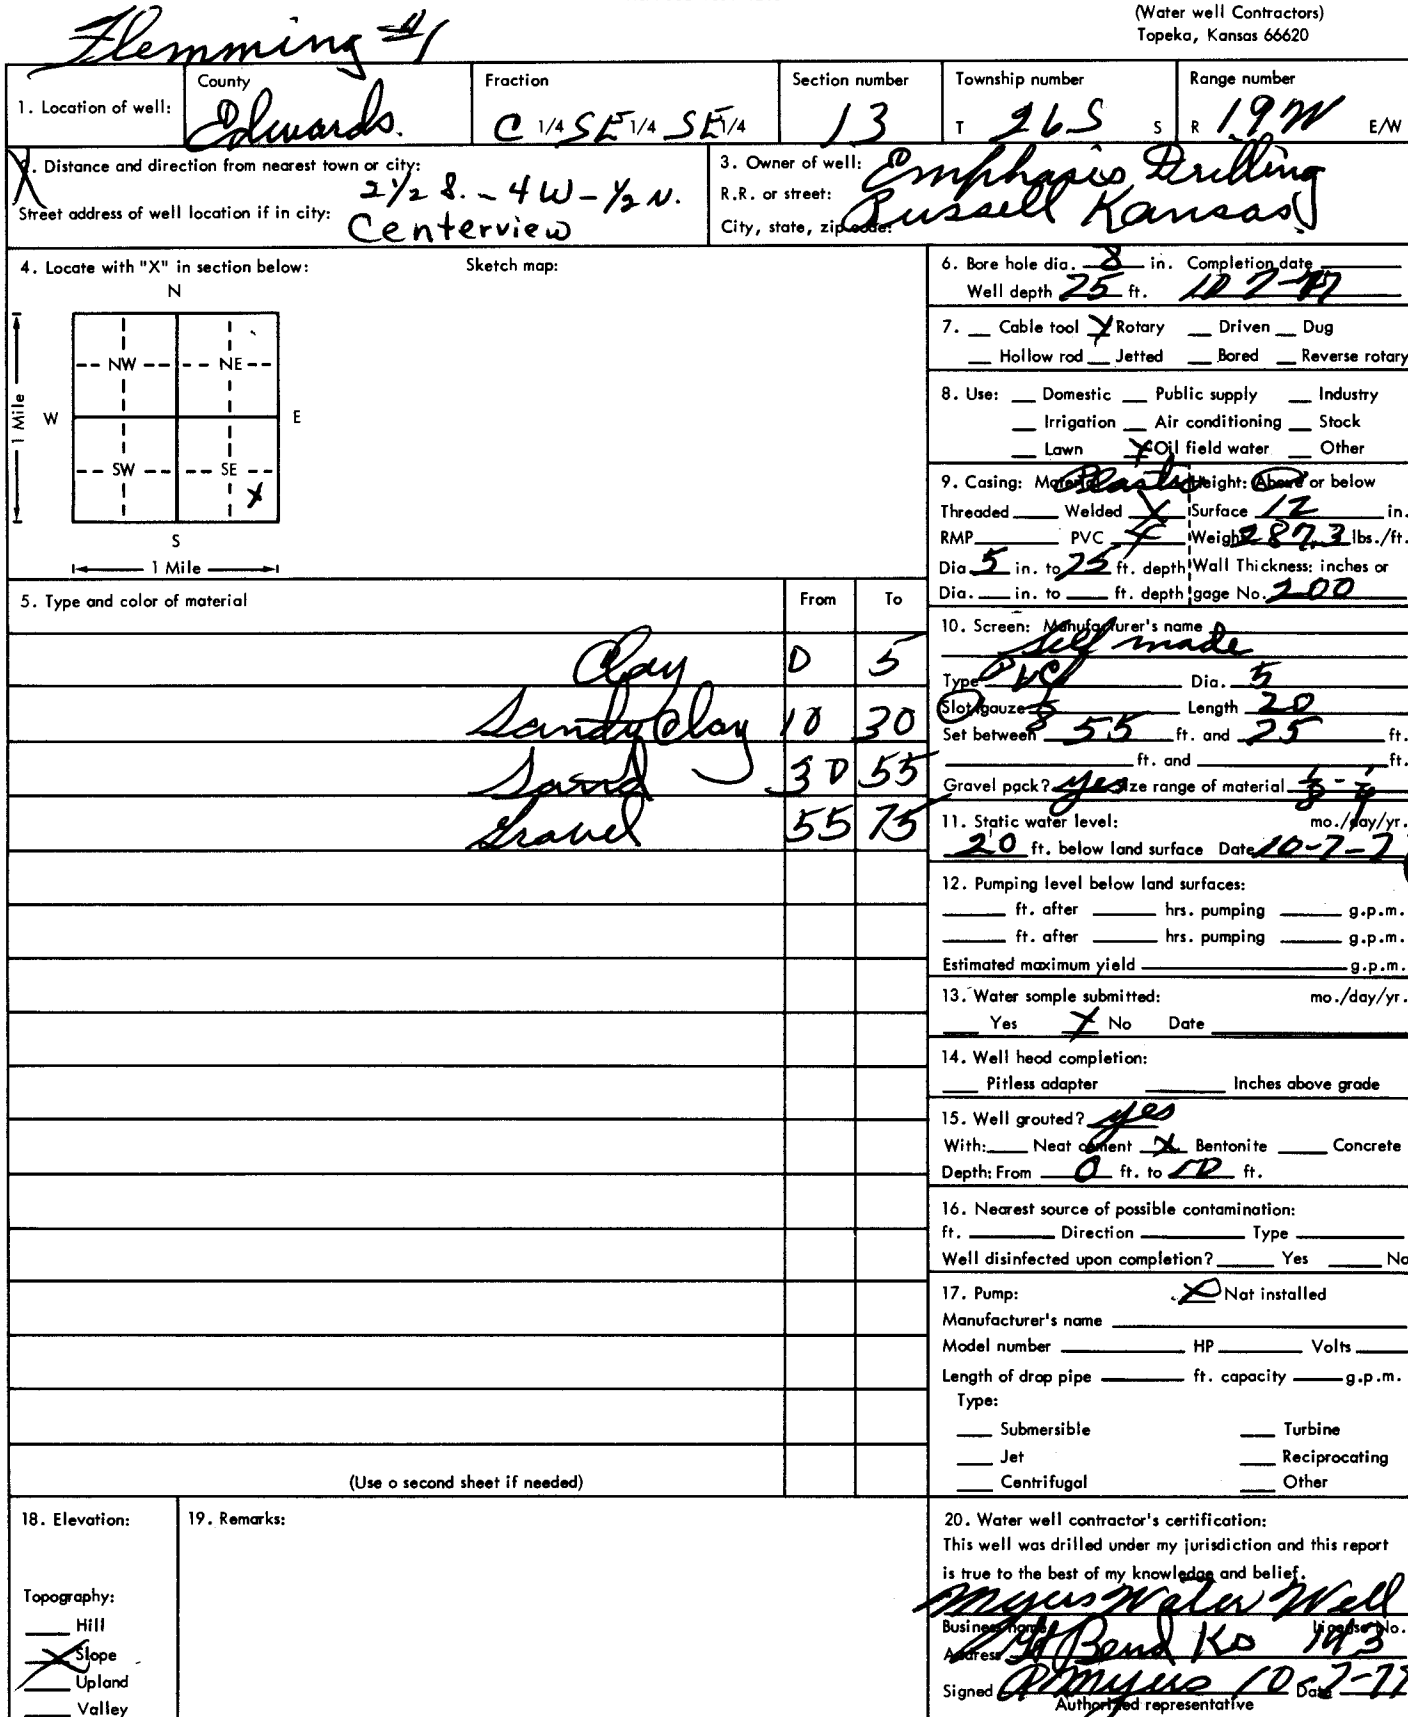 (Water well Contractors)
Topeka, Kansas 66620
Flemming #1
1. Location of well:
County
Edwards.
Fraction
C 1/4 SE 1/4 SE 1/4
Section number
13
Township number
T 26S S
Range number
R 19W E/W
2. Distance and direction from nearest town or city:
2 1/2 S. - 4 W - 1/2 N.
Street address of well location if in city:
Centerview
3. Owner of well: Emphasis Drilling
R.R. or street:
City, state, zip code: Russell Kansas
4. Locate with "X" in section below:
Sketch map:
N
NW NE
W E
1 Mile
SW SE
X
S
1 Mile
5. Type and color of material From To
Clay 0 5
Sandy Clay 10 30
Sand 30 55
Gravel 55 75
(Use o second sheet if needed)
6. Bore hole dia. 8 in. Completion date
Well depth 75 ft. 10 7-77
7. Cable tool X Rotary Driven Dug
Hollow rod Jetted Bored Reverse rotary
8. Use: Domestic Public supply Industry
Irrigation Air conditioning Stock
Lawn X Oil field water Other
9. Casing: Material Plastic Height: Above or below
Threaded Welded X Surface 12 in.
RMP PVC X Weight 287.3 lbs./ft.
Dia 5 in. to 75 ft. depth Wall Thickness: inches or
Dia. in. to ft. depth gage No. 200
10. Screen: Manufacturer's name
Self made
Type PVC Dia. 5
Slot/gauze 1/8 Length 20
Set between 55 ft. and 75 ft.
ft. and ft.
Gravel pack? yes Size range of material 1/8 - 1/4
11. Static water level: mo./day/yr.
20 ft. below land surface Date 10-7-7
12. Pumping level below land surfaces:
ft. after hrs. pumping g.p.m.
ft. after hrs. pumping g.p.m.
Estimated maximum yield g.p.m.
13. Water somple submitted: mo./day/yr.
Yes X No Date
14. Well head completion:
Pitless adapter Inches above grade
15. Well grouted? yes
With: Neat cement X Bentonite Concrete
Depth: From 0 ft. to 10 ft.
16. Nearest source of possible contamination:
ft. Direction Type
Well disinfected upon completion? Yes No
17. Pump: X Not installed
Manufacturer's name
Model number HP Volts
Length of drop pipe ft. capacity g.p.m.
Type:
Submersible Turbine
Jet Reciprocating
Centrifugal Other
18. Elevation:
Topography:
Hill
X Slope
Upland
Valley
19. Remarks:
20. Water well contractor's certification:
This well was drilled under my jurisdiction and this report
is true to the best of my knowledge and belief.
Myers Water Well
Business name License No.
Address Gt Bend Ks 143
Signed Myers 10-7-77 Date
Authorized representative